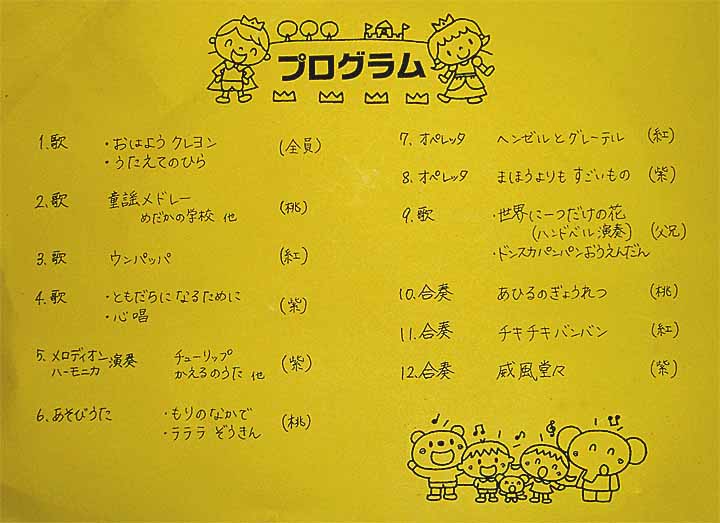 プログラム
1.歌 ・おはよう クレヨン (全員)
・うたえてのひら
2.歌 童謡メドレー (桃)
めだかの学校 他
3.歌 ウンパッパ (紅)
4.歌 ・ともだちに なるために (紫)
・心唱
5.メロディオン ハーモニカ 演奏 チューリップ (紫)
かえるのうた 他
6.あそびうた ・もりのなかで (桃)
・ラララ ぞうきん
7.オペレッタ ヘンゼルとグレーテル (紅)
8.オペレッタ まほうよりも すごいもの (紫)
9.歌 ・世界に一つだけの花
(ハンドベル演奏) (父兄)
・ドンスカパンパンおうえんだん
10.合奏 あひるのぎょうれつ (桃)
11.合奏 チキチキバンバン (紅)
12.合奏 威風堂々 (紫)